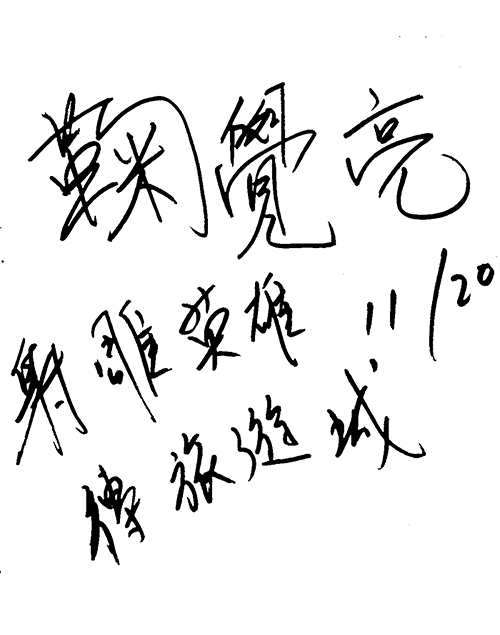 鞠覺亮
射鵰英雄 11/20
傳旅遊城